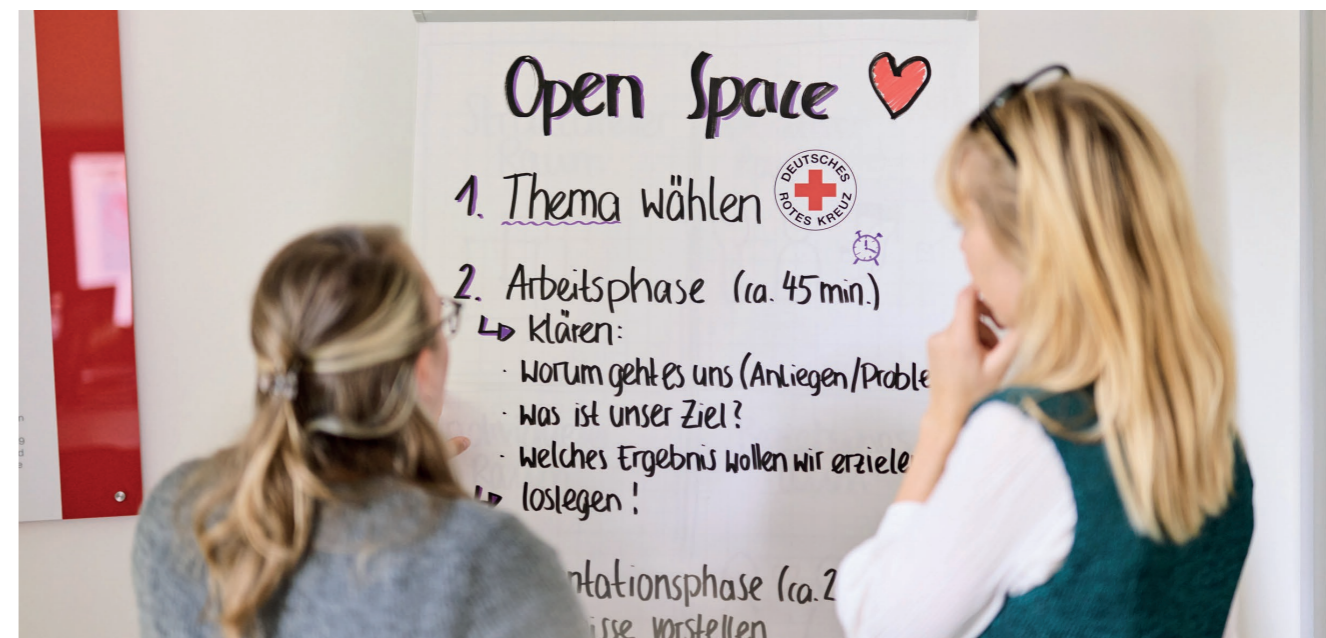 Open Space
1. Thema wählen
DEUTSCHES ROTES KREUZ
2. Arbeitsphase (ca. 45 min.)
klären:
· worum geht es uns (Anliegen/Proble
· was ist unser Ziel?
· welches Ergebnis wollen wir erziele
loslegen!
ntationsphase (ca. 2
isse vorstellen